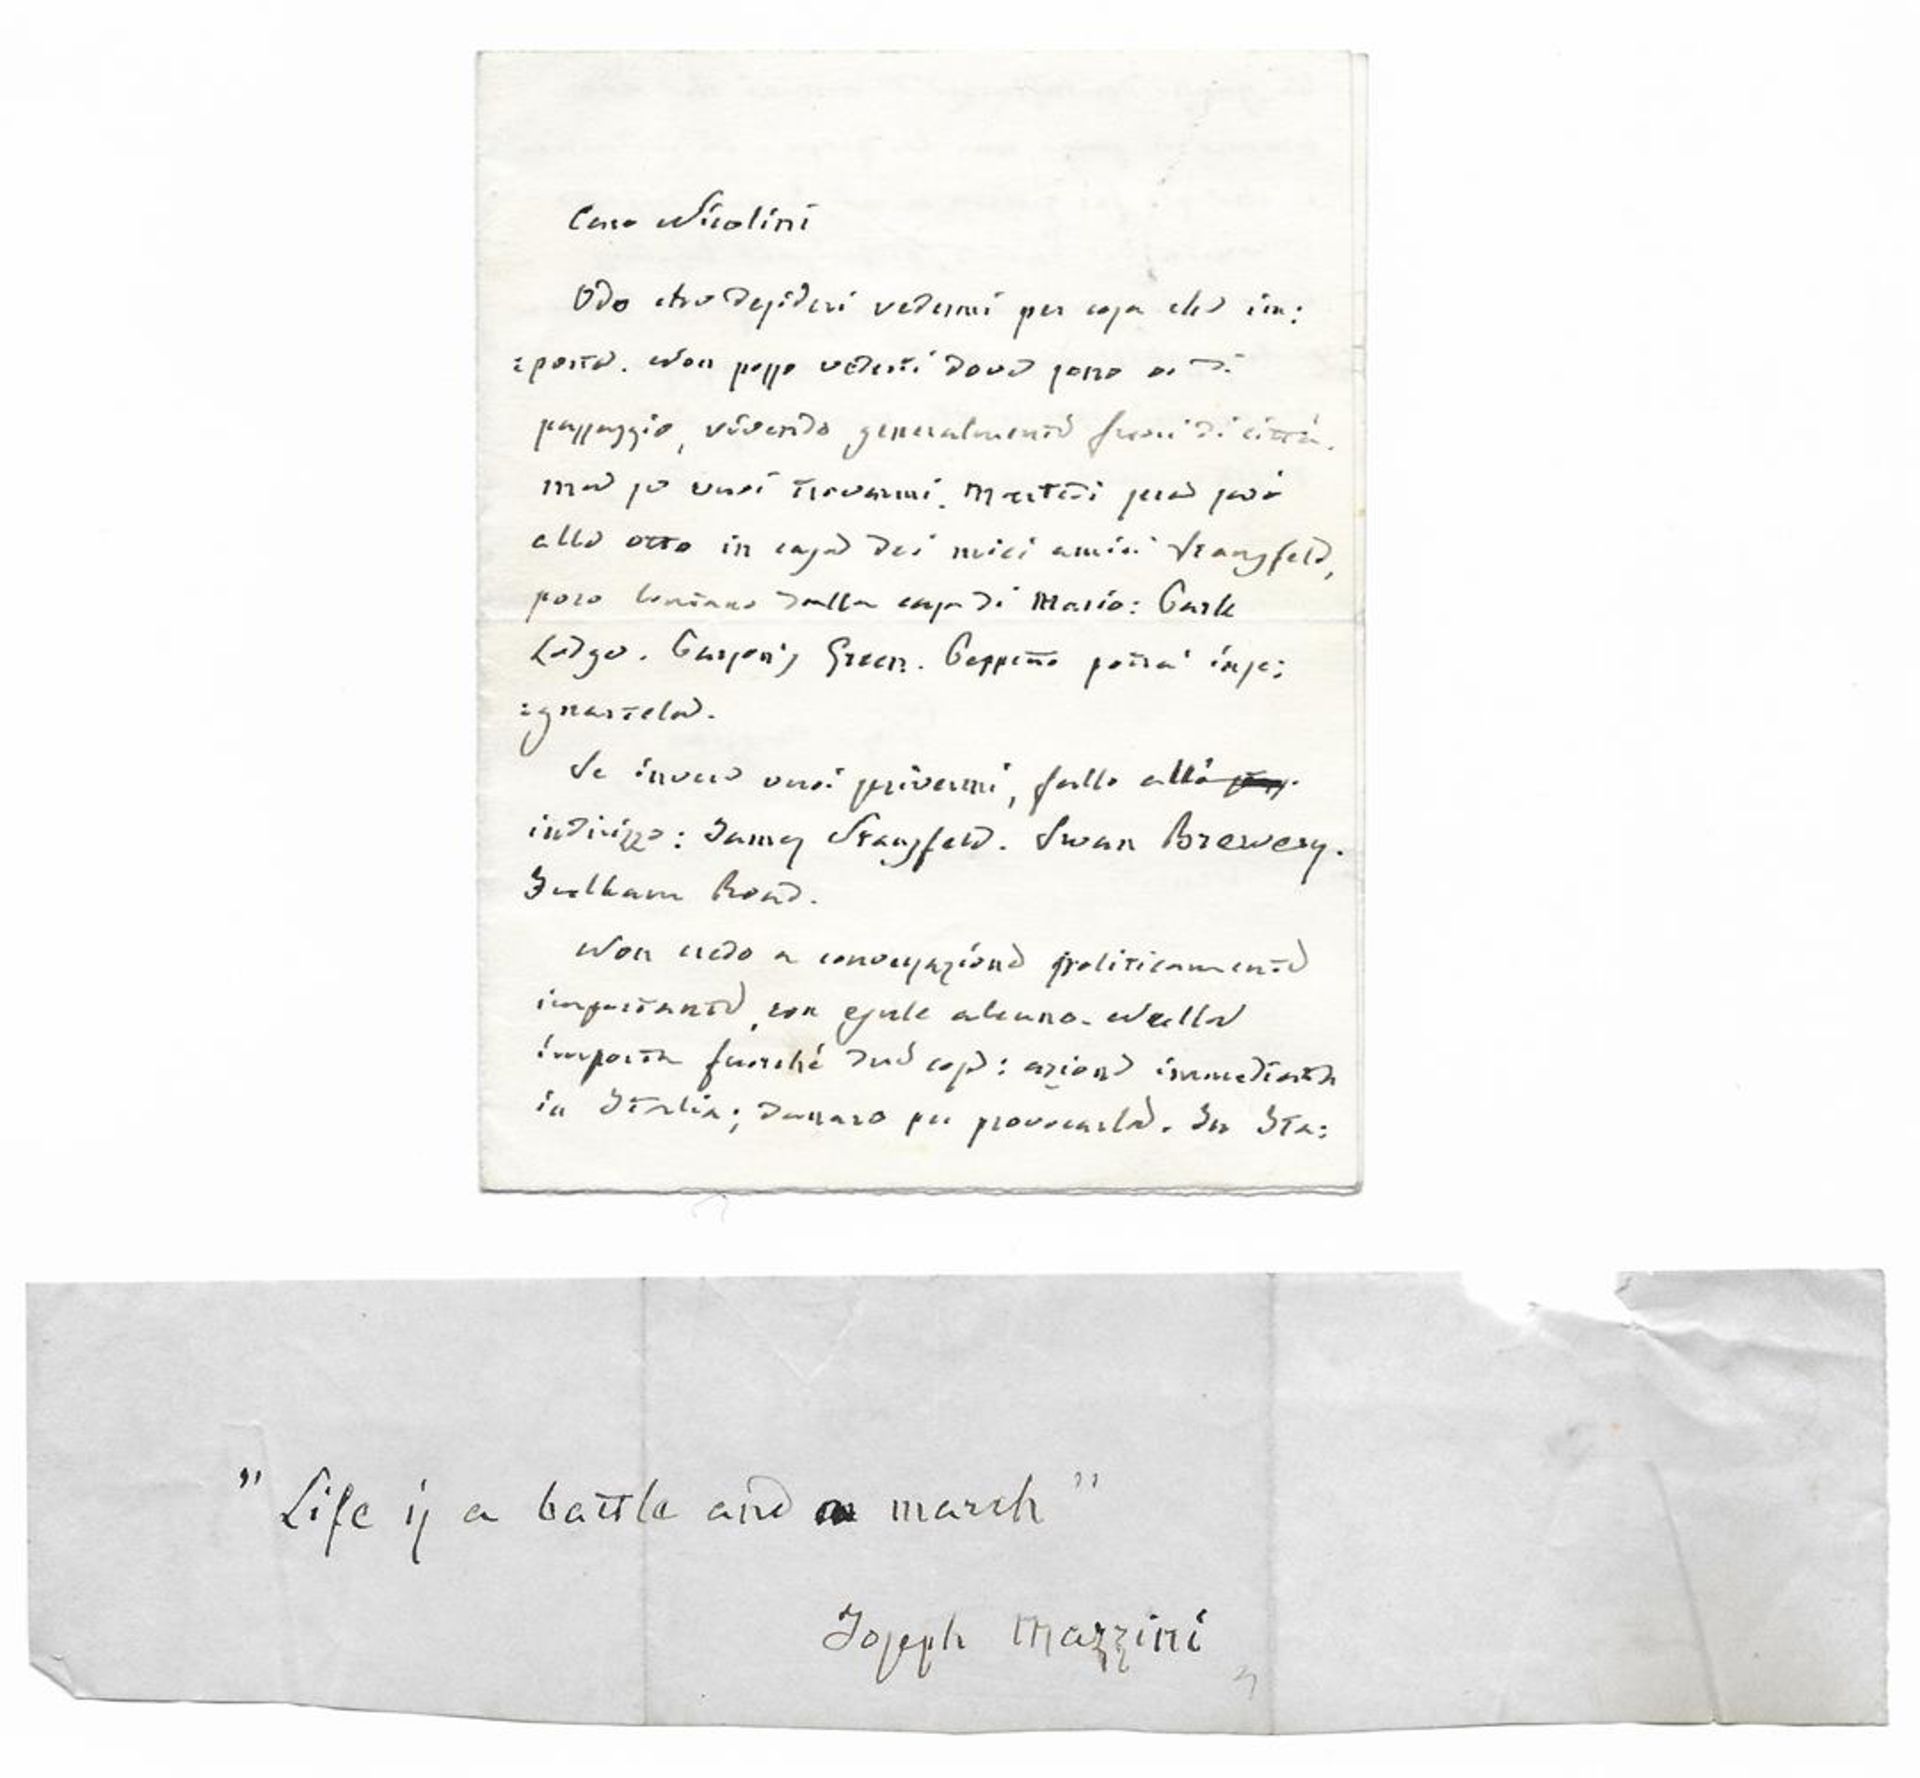 Caro Nicolini
Odo che desideri vedermi per cosa che im:
:porta. Non posso vederti dove sono di
passaggio, vivendo generalmente fuori di città.
ma se vuoi trovarmi. Martedì sera sarò
alle otto in casa dei miei amici Stansfeld,
poco lontano dalla casa di Mario: Park
Lodge. Parson's Green. Beppino potrà inse:
:gnartela.
Se invece vuoi scrivermi, fallo all'
indirizzo: James Stansfeld. Swan Brewery.
Fulham Road.
Non credo a conversazione politicamente
importante, con esule alcuno. Nulla
importa fuorché due cose: azione immediata
in Italia; danaro per provocarla. In Ita:
"Life is a battle and a march"
Joseph Mazzini